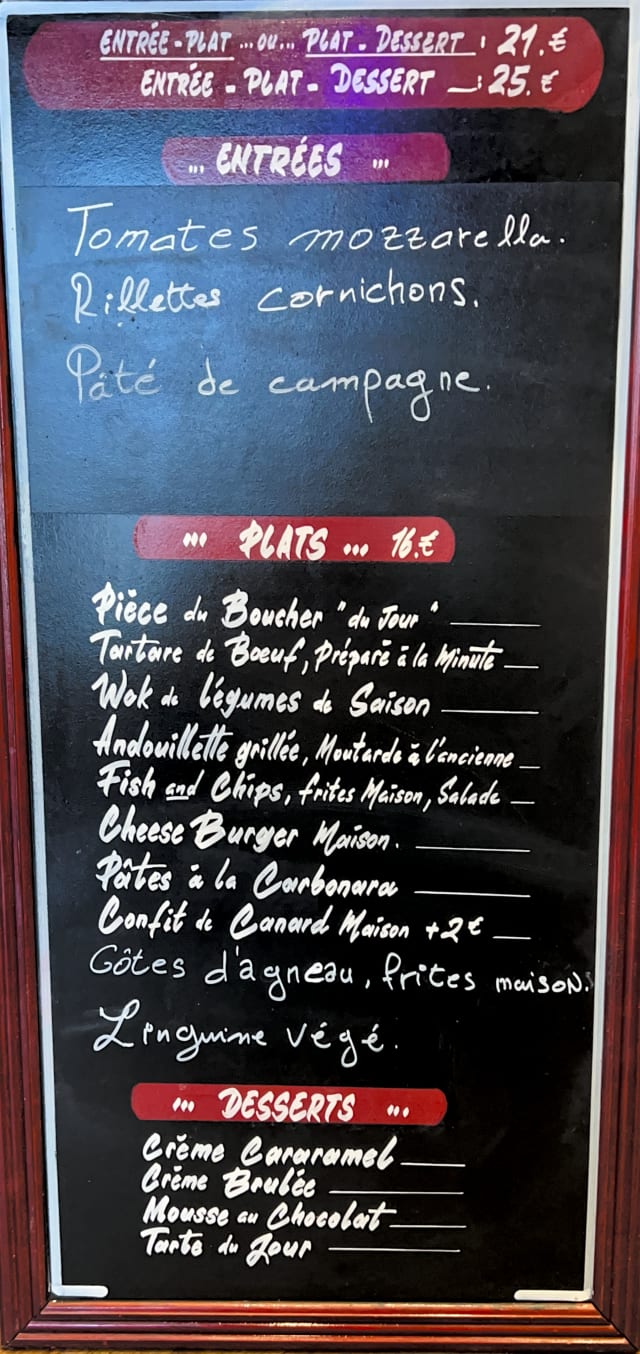 ENTRÉE - PLAT ... OU ... PLAT - DESSERT : 21.€
ENTRÉE - PLAT - DESSERT —: 25.€
... ENTRÉES ...
Tomates mozzarella.
Rillettes cornichons.
Pâté de campagne.
... PLATS ... 16.€
Pièce du Boucher "du Jour"
Tartare de Bœuf, Préparé à la Minute
Wok de Légumes de Saison
Andouillette grillée, Moutarde à l'ancienne
Fish and Chips, frites Maison, Salade
Cheese Burger Maison.
Pâtes à la Carbonara
Confit de Canard Maison +2€
Côtes d'agneau, frites maison.
Linguine végé.
... DESSERTS ...
Crème Cararamel
Crème Brulée
Mousse au Chocolat
Tarte du Jour